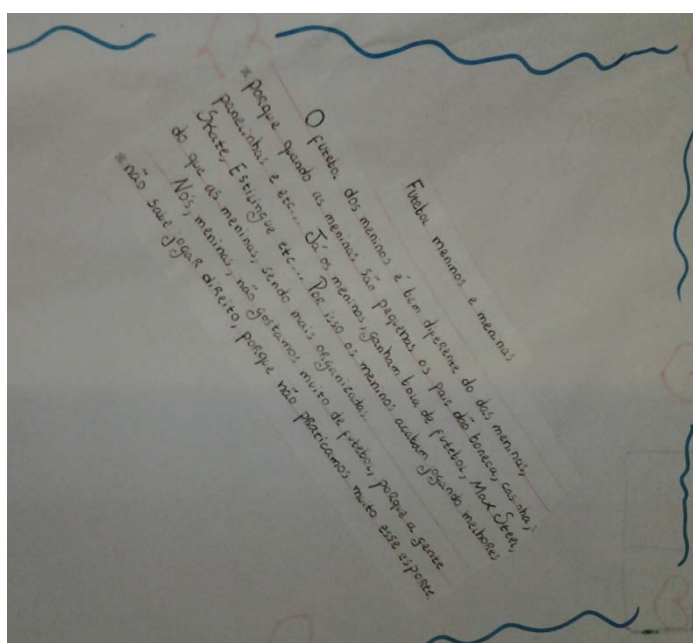 Futebol meninos e meninas
O futebol dos meninos é bem diferente do das meninas,
porque quando as meninas são pequenas os pais dão boneca, casinha,
panelinhas e etc... Já os meninos, ganham bola de futebol, Max Steel,
Skate, Estilingue etc... Por isso os meninos acabam jogando melhores
do que as meninas, sendo mais organizados.
Nós, meninas, não gostamos muito de futebol, porque a gente
não sabe jogar direito, porque não praticamos muito esse esporte.